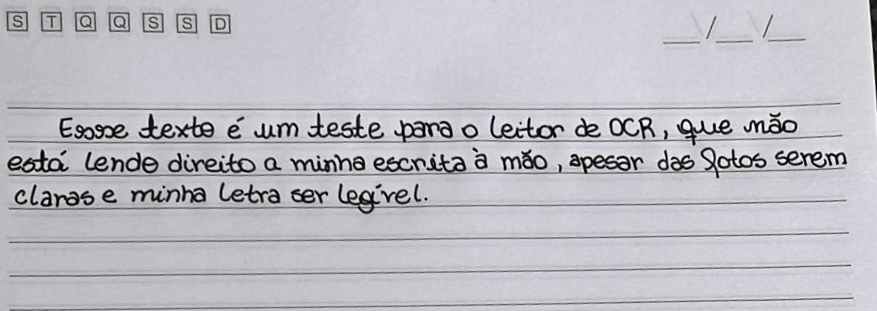 S T Q Q S S D
__/__/__
Esse texto é um teste para o leitor de OCR, que não
está lendo direito a minha escrita à mão, apesar das fotos serem
claras e minha letra ser legível.